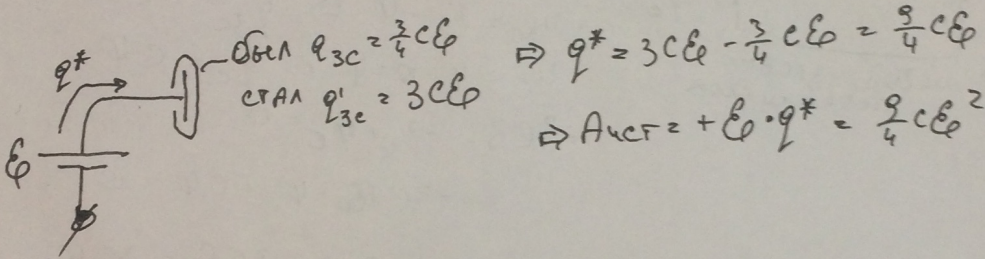 q*
был q₃c = 3/4 cℰ
стал q'₃c = 3cℰ
ℰ
⇒ q* = 3cℰ - 3/4 cℰ = 9/4 cℰ
⇒ Аист = + ℰ · q* = 9/4 cℰ²